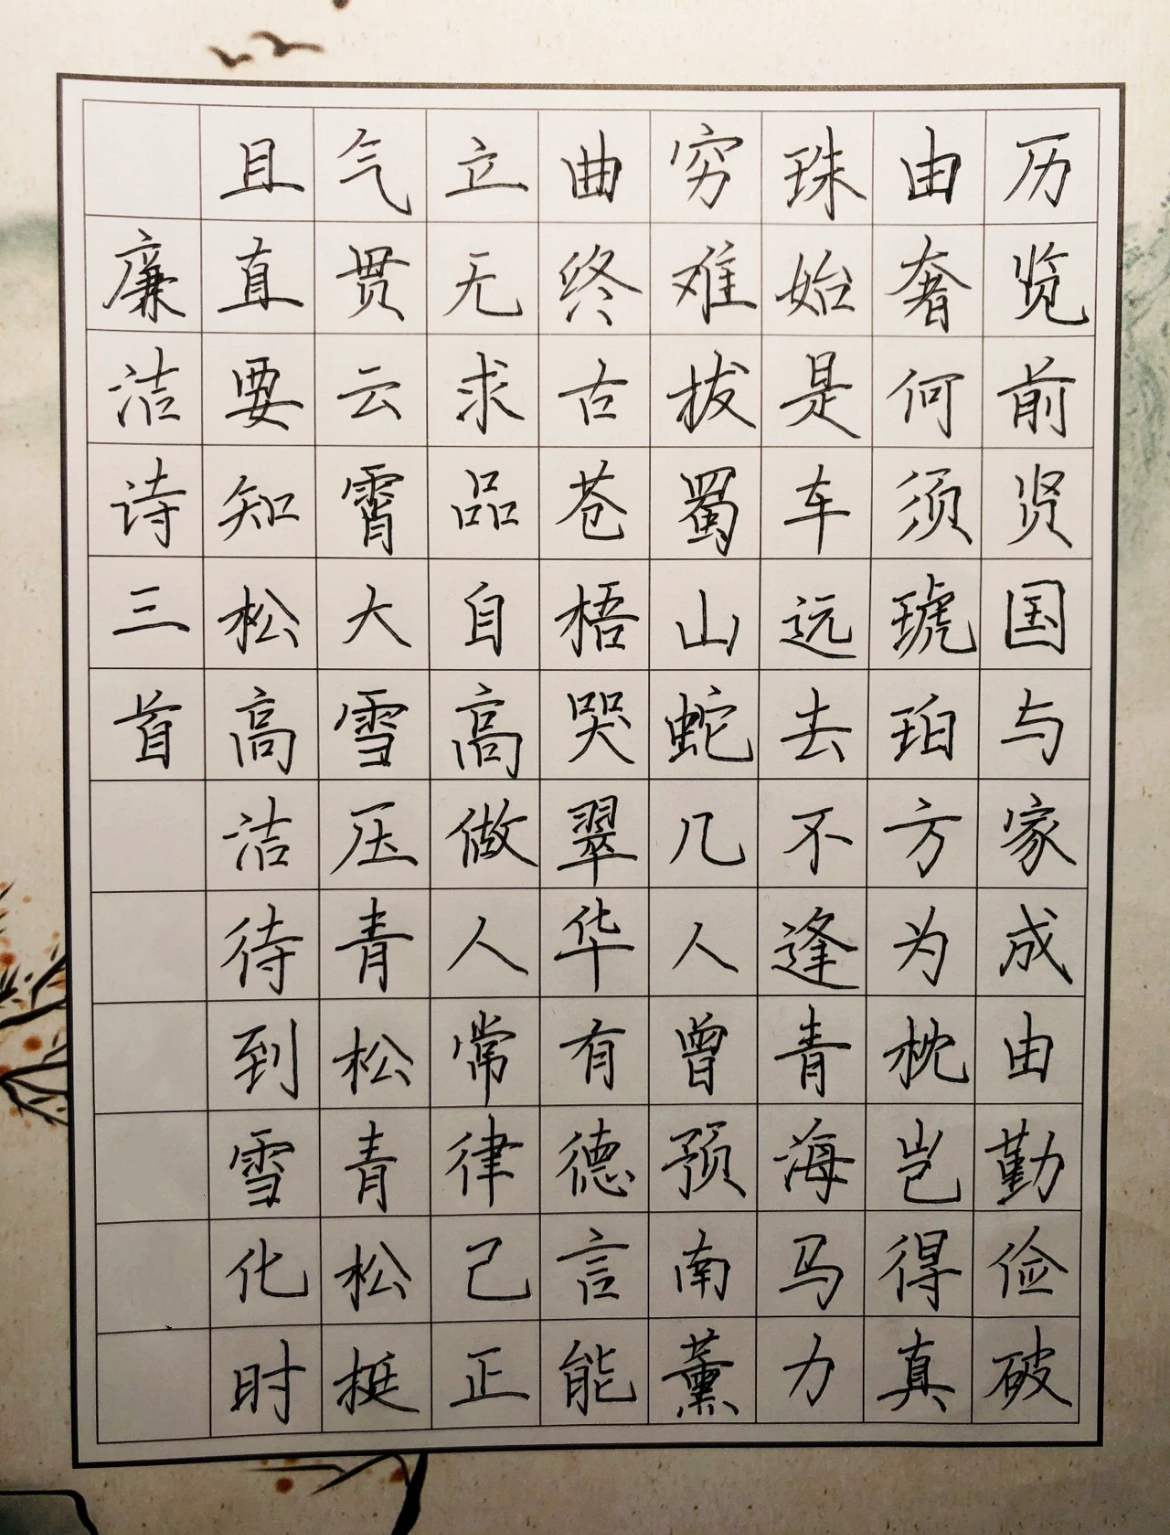 历览前贤国与家成由勤俭破
由奢何须琥珀方为枕岂得真
珠始是车远去不逢青海马力
穷难拔蜀山蛇几人曾预南薰
曲终古苍梧哭翠华有德言能
立无求品自高做人常律己正
气贯云霄大雪压青松青松挺
且直要知松高洁待到雪化时
廉洁诗三首